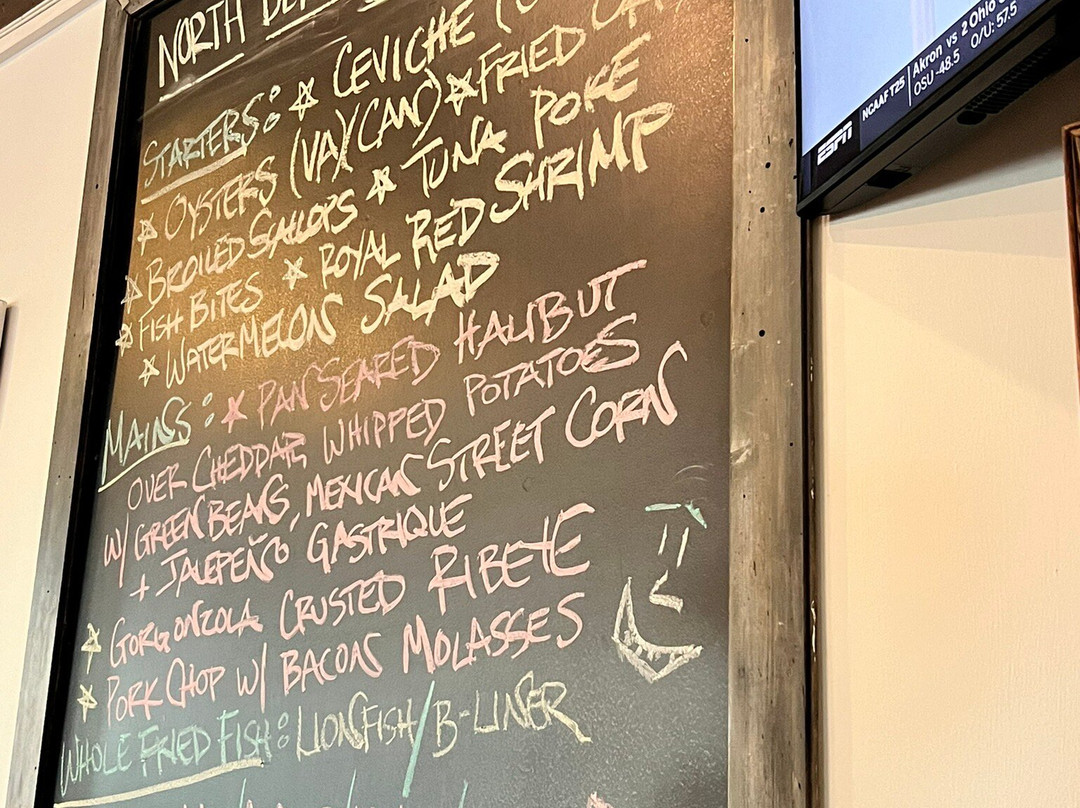 NORTH
STARTERS: ☆ CEVICHE
☆ OYSTERS (VA)(CAN) ☆ FRIED
☆ BROILED SCALLOPS ☆ TUNA POKE
☆ FISH BITES ☆ ROYAL RED SHRIMP
☆ WATERMELON SALAD
MAINS: ☆ PAN SEARED HALIBUT
OVER CHEDDAR WHIPPED POTATOES
W/ GREEN BEANS, MEXICAN STREET CORN
+ JALEPEÑO GASTRIQUE
☆ GORGONZOLA CRUSTED RIBEYE
☆ PORK CHOP W/ BACON MOLASSES
WHOLE FRIED FISH: LIONFISH/B-LINER
ESPN
NCAAF T25
Akron vs 2 Ohio
OSU -48.5 O/U: 57.5